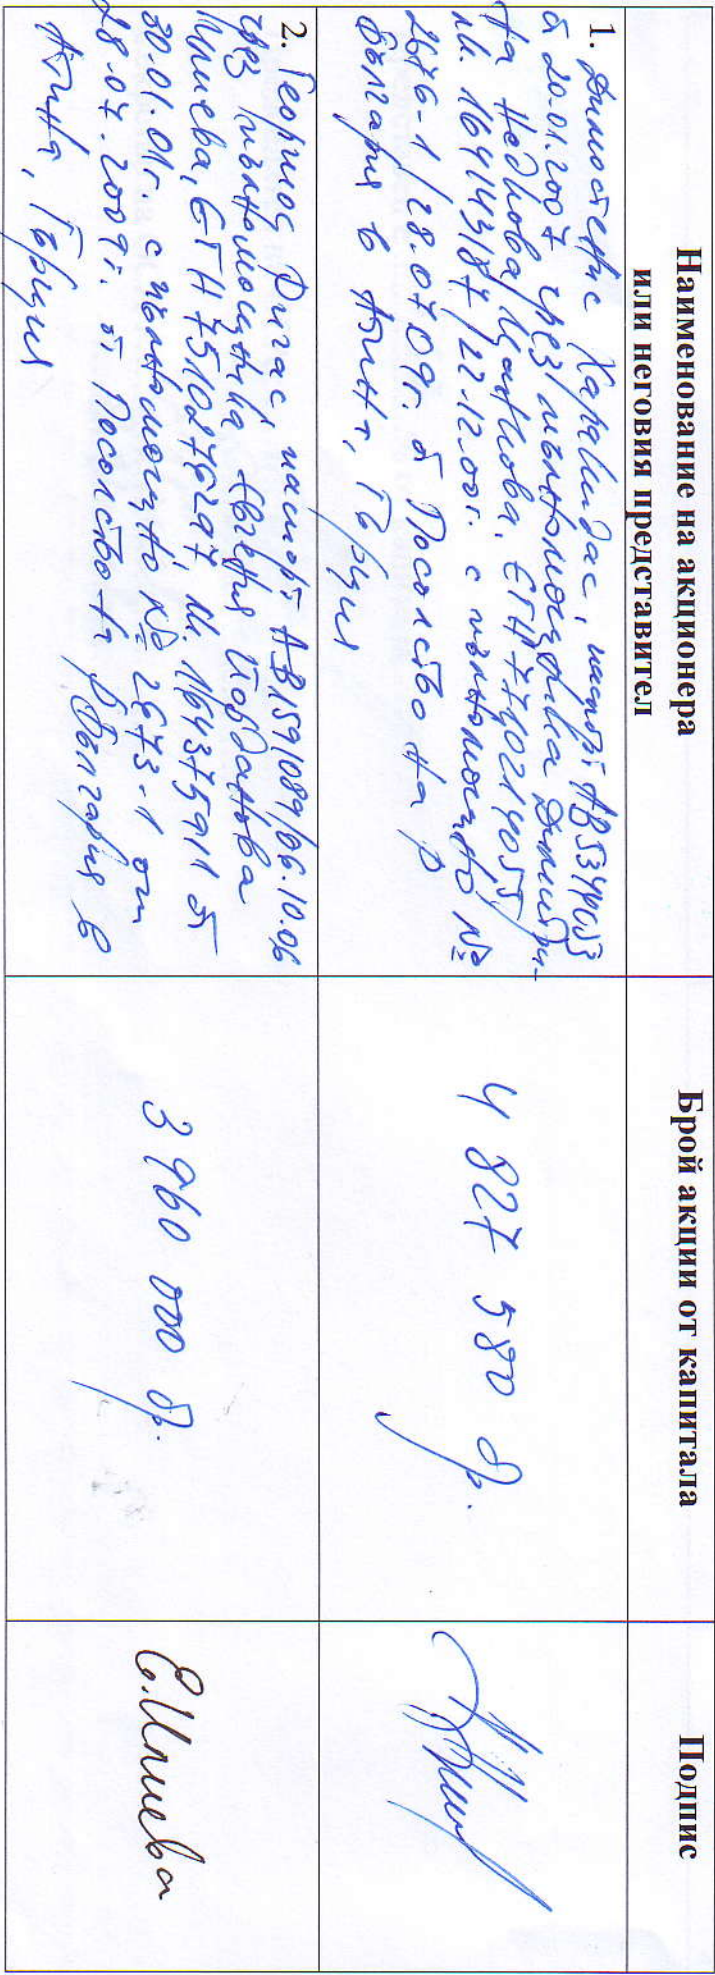 Наименование на акционера
или неговия представител
Брой акции от капитала
Подпис
1. Димостенис Харавидас, паспорт AB5344053
от 20.01.2007 чрез пълномощника Димитри-
на Недкова Цоткова, ЕГН 7741021
л.к. 164143187/22.12.00г. с пълномощно №
2676-1/28.07.09г. от Посолство на Р
България в Атина, Гърция
4 827 580 бр.
2. Георгиос Ригас, паспорт AB1591089/06.10.06
чрез пълномощника Евгения Йовданова
Илиева, ЕГН 7510276297, л.к. 164375911 от
30.01.01г. с пълномощно № 2673-1 от
28.07.2009г. от Посолство на Р България в
Атина, Гърция
3 960 000 бр.
Е. Илиева